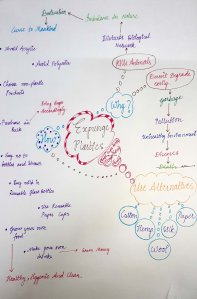 Eradication
Curse to Mankind
Imbalance in nature
Disturbs Biological
Network
Kills Animals
Doesn't Degrade
easily
garbage
Pollution
Unhealthy Environment
Diseases
Death
Why?
Expunge
Plastics
How?
Avoid Acrylic
Avoid Polyester
Choose non-plastic
Products
Bring bags
Accordingly
Purchase in
Bulk
Say no to
bottles and Straws
Buy milk in
Reusable glass bottles
Use Reusable
Paper Cups
Grow your own
food
Make your own
drinks
Saves Money
Healthy, Hygienic And Clean.
Use Alternatives
Cotton
Hemp
Wool
Silk
Paper